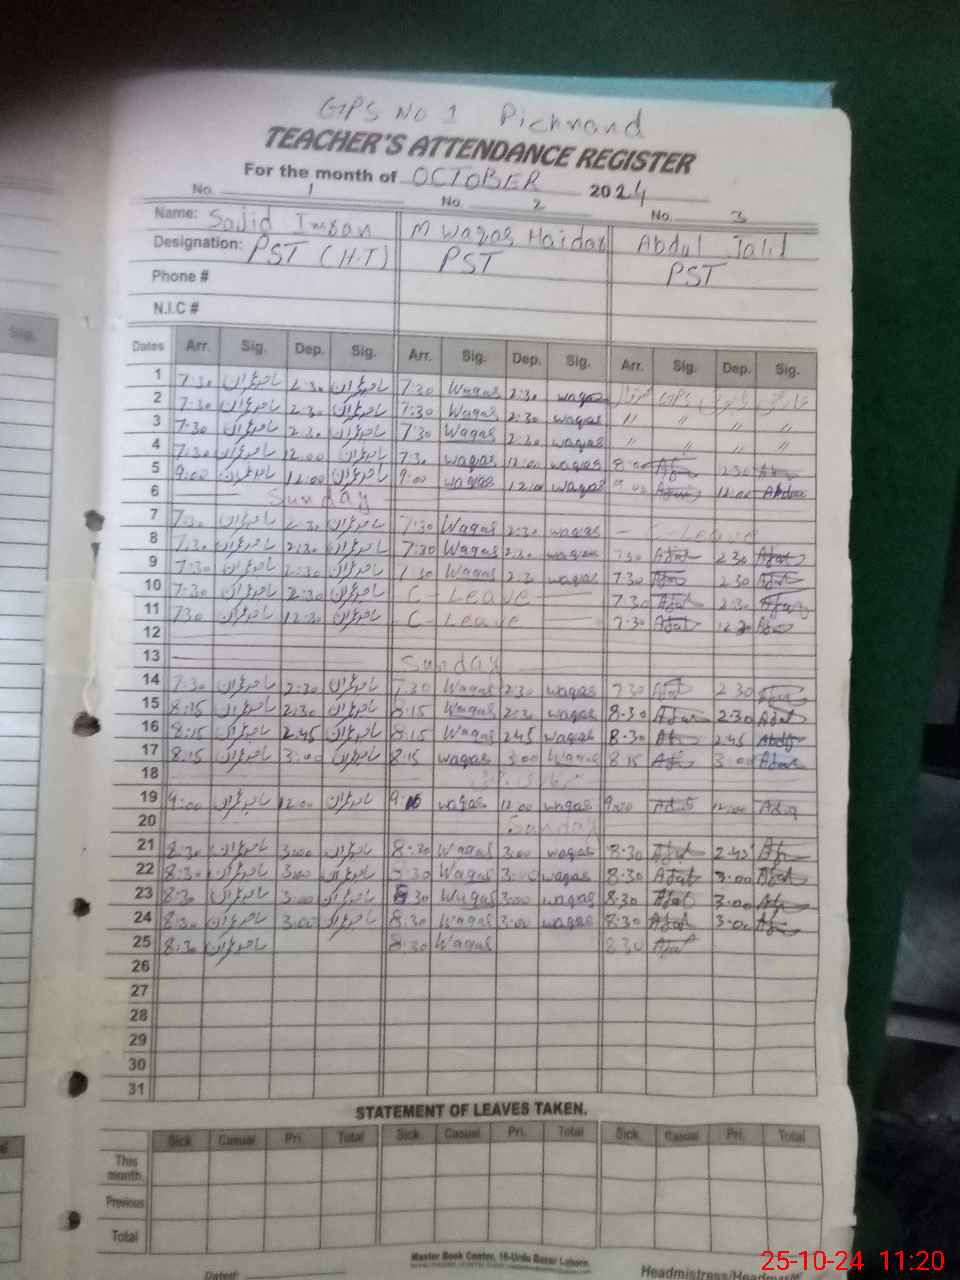 GPS No 1 Pichnand
TEACHER'S ATTENDANCE REGISTER
For the month of OCTOBER 2024
No. 1 No. 2 No. 3
Name: Sajid Imran M Waqas Haidar Abdul Jalil
Designation: PST (H.T) PST PST
Phone #
N.I.C #
Sig.
Dates Arr. Sig. Dep. Sig. Arr. Sig. Dep. Sig. Arr. Sig. Dep. Sig.
1 7:30 ساجد عمران 2:30 ساجد عمران 7:30 Waqas 2:30 waqas
2 7:30 ساجد عمران 2:30 ساجد عمران 7:30 Waqas 2:30 waqas " " " "
3 7:30 ساجد عمران 2:30 ساجد عمران 7:30 Waqas 2:30 waqas " " " "
4 7:30 ساجد عمران 12:00 ساجد عمران 7:30 waqas 12:00 waqas 8:00 2:30
5 9:00 ساجد عمران 12:00 ساجد عمران 9:00 waqas 12:00 waqas 9:00 12:00
6 Sunday
7 7:30 ساجد عمران 2:30 ساجد عمران 7:30 Waqas 2:30 waqas - C-Leave
8 7:30 ساجد عمران 2:30 ساجد عمران 7:30 Waqas 2:30 waqas 7:30 2:30
9 7:30 ساجد عمران 2:30 ساجد عمران 7:30 Waqas 2:30 waqas 7:30 2:30
10 7:30 ساجد عمران 2:30 ساجد عمران C-Leave 7:30 2:30
11 7:30 ساجد عمران 12:30 ساجد عمران C-Leave 7:30 12:30
12
13 Sunday
14 7:30 ساجد عمران 2:30 ساجد عمران 7:30 Waqas 2:30 waqas 7:30 2:30
15 8:15 ساجد عمران 2:30 ساجد عمران 8:15 Waqas 2:30 waqas 8:30 2:30
16 8:15 ساجد عمران 2:45 ساجد عمران 8:15 Waqas 2:45 waqas 8:30 2:45
17 8:15 ساجد عمران 3:00 ساجد عمران 8:15 waqas 3:00 Waqas 8:15 3:00
18
19 9:00 ساجد عمران 12:00 ساجد عمران waqas 12:00 waqas 9:00 12:00
20 Sunday
21 8:30 ساجد عمران 3:00 ساجد عمران 8:30 Waqas 3:00 waqas 8:30 2:45
22 8:30 ساجد عمران 3:00 ساجد عمران 8:30 Waqas 3:00 waqas 8:30 3:00
23 8:30 ساجد عمران 3:00 ساجد عمران 8:30 Waqas 3:00 waqas 8:30 3:00
24 8:30 ساجد عمران 3:00 ساجد عمران 8:30 Waqas 3:00 waqas 8:30 3:00
25 8:30 ساجد عمران 8:30 Waqas 8:30
26
27
28
29
30
31
STATEMENT OF LEAVES TAKEN.
Sick Casual Pri. Total Sick Casual Pri. Total Sick Casual Pri. Total
This month.
Previous
Total
Master Book Center, 16-Urdu Bazar Lahore.
Dated: Headmistress/Headmaster
25-10-24 11:20